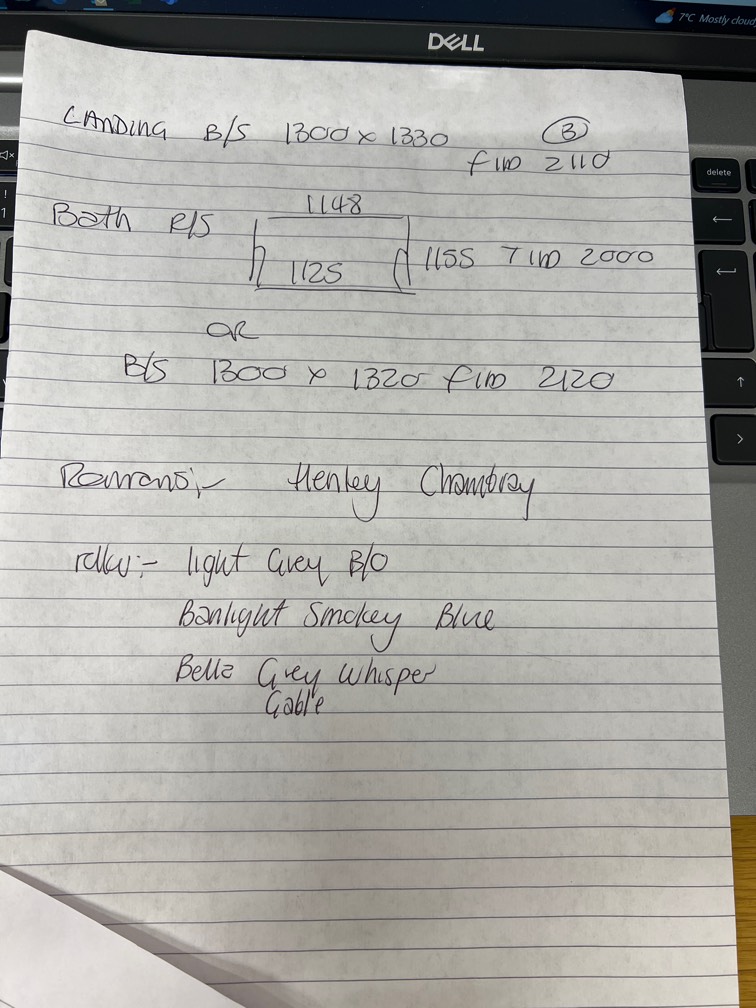 7°C Mostly cloudy
DELL
delete
LANDING B/S 1300 x 1330 (3)
FLID 2110
Bath R/S 1148
1125 1155 7 LID 2000
OR
B/S 1300 x 1320 FLID 2120
Romans:- Henley Chambray
roller:- light Grey B/O
Banlight Smokey Blue
Bella Grey Whisper
Gable